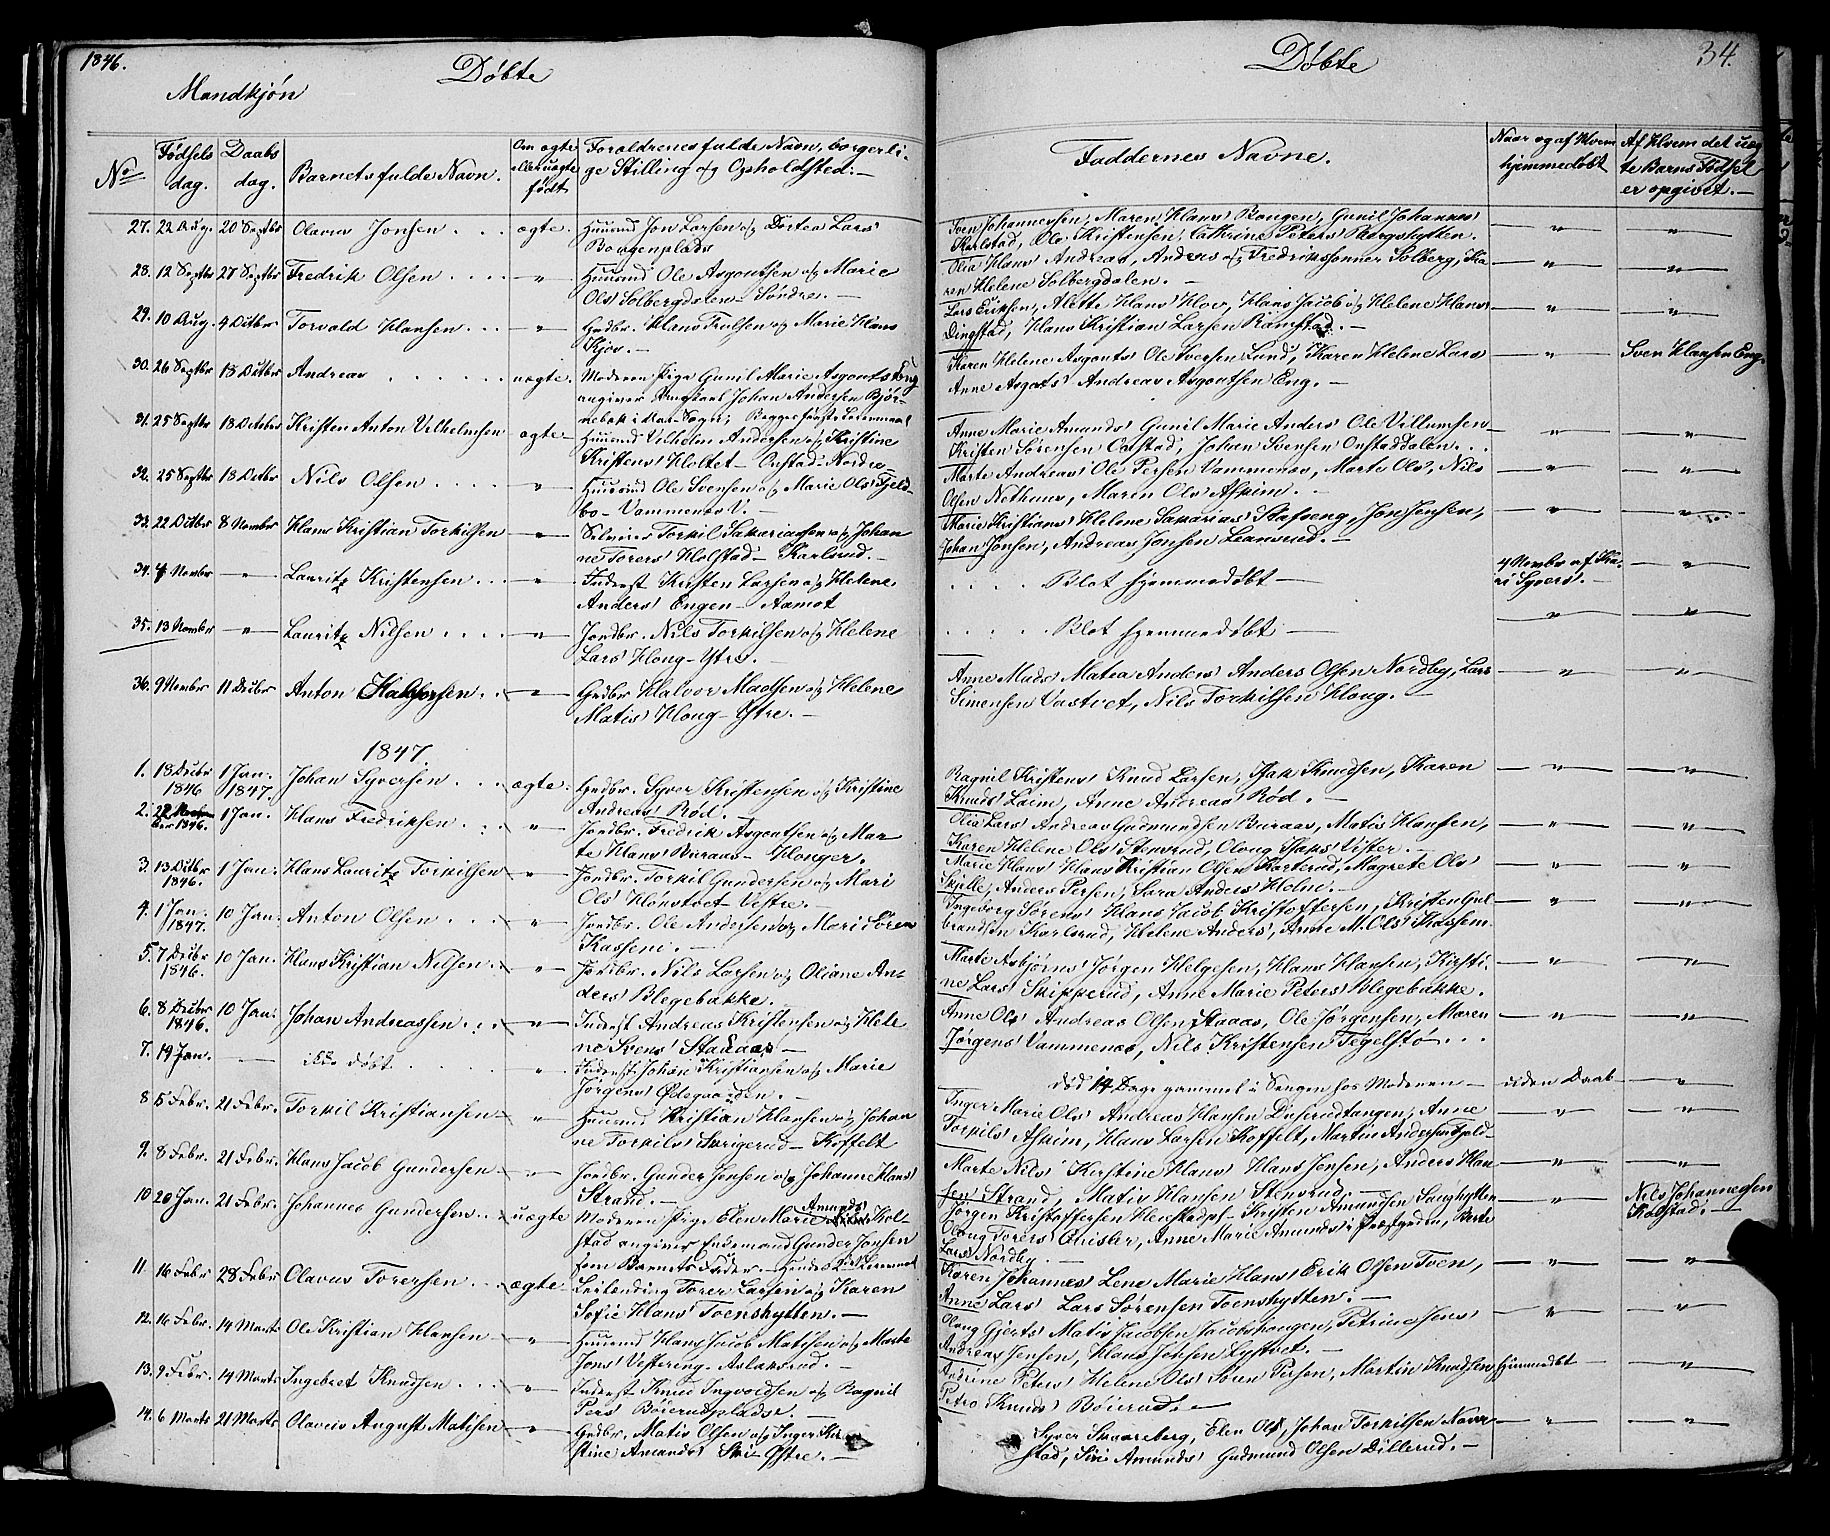 1846.
Døbte
Mandkjøn
No
Fødsels dag.
Daabs dag.
Barnets fulde Navn.
Om ægte eller uægte født
Forældrenes fulde Navn, borgerlige Stilling og Opholdsted.—
27. 22 Aug. 20 Septbr Olavus Jonsen . . . ægte. Huusmd Jon Larsen og Dortea Lars'
Borgenplads
28. 12 Septbr 27 Septbr Fredrik Olsen . . . . „ Huusmd Ole Asgoutsen og Marie
Ols' Solbergdalen— Søndre.—
29. 10 Aug. 4 Octbr Torvald Hansen . . . —„— Grdbr. Hans Trulsen og Marie Hans
Kjøs.—
30. 26 Septbr 18 Octbr Andreas . . . . . . uægte. Moderen Pige Gunil Marie Asgouts Eng
angiver Ungkarl Johan Andersen Bjør-
nebek i Kraa. Sogn; Begges første Leiermaal
31. 25 Septbr 18 Octobr Kristen Anton Vilhelmsen ægte— Huusmd Vilhelm Andersen og Kristine
Kristens' Holtet— Onstad-Nordre—
32. 25 Septbr 18 Octbr Nils Olsen . . . . „ Huusmd Ole Svensen og Marie Ols' Fjeld-
bo— Vammenæs V.—
33. 22 Octbr 8 Novmbr Hans Kristian Torkilsen —„— Selveier Torkil Sakariassen og Johan
ne Torers' Holstad— Karlsrud.—
34. 4 Novmbr —„— Lauritz Kristensen . . . —„— Inderst Kristen Larsen og Helene
Anders' Engen— Aamot
35. 13 Novmbr —„— Lauritz Nilsen . . . . —„— Jordbr. Nils Torkilsen og Helene
Lars' Houg—Ytre.—
36. 9 Novmbr 11 Decbr Anton Halvorsen . . —„— Grdbr Halvor Madsen og Helene
Matis' Houg—Østre.—
1847.
1. 18 Decbr 1846 1 Jan. 1847. Johan Syversen . . . ægte. Grdbr. Syver Kristensen og Kristine
Andreas' Rød.—
2. 1846. 1 Jan. Hans Fredriksen . . . —„— Jordbr. Fredrik Asgoutsen og Mar-
te Hans' Buraas— Houger.
3. 13 Octbr 1846. 1 Jan. Hans Lauritz Torkilsen —„— Jordbr. Torkil Gundersen og Mari
Ols' Honstvet— Vestre.—
4. 1 Jan. 1847. 10 Jan. Anton Olsen . . . „ Jordbr. Ole Andersen og Mari Sören
Kasseni.—
5. 7 Decbr 1846. 10 Jan. Hans Kristian Nilsen. —„— Jordbr. Nils Larsen og Oliane An-
ders' Blegebakke.—
6. 8 Decbr 1846. 10 Jan. Johan Andreassen . . . —„— Inderst Andreas Kristensen og Hele
ne Svens' Staaas—
7. 19 Jan. — ikke døbt . . . . „ Inderst Johan Kristiansen og Marie
Jørgens' Ødegaarden.—
8 15 Febr. 21 Febr. Torkil Kristiansen— „ Huusmd Kristian Hansen og Johan
ne Torkils' Sørigerud— Koffelt
9. 8 Febr. 21 Febr. Hans Jacob Gundersen— „ Jordbr. Gunder Jonsen og Johanne Hans'
Strand.—
10 20 Jan. 21 Febr. Johannes Gundersen . . uægte Moderen Pige Elen Marie Amunds' Kol-
stad angiver Enkemand Gunder Jonsen
som Barnets Fader.—
11. 16 Febr 28 Febr Olavus Torersen . . ægte. Leilending Torer Larsen og Karen
Sofie Hans' Toenshytten.—
12. 16 Febr. 14 Marts Ole Kristian Hansen— „ Huusmd Hans Jacob Matisen og Marte
Jons' Vestereng— Aslaksrud.—
13. 9 Febr. 14 Marts Ingebret Knudsen . . „ Inderst Knud Ingvoldsen og Ragnil
Pers' Böierudpladse.—
14. 6 Marts 21 Marts Olavus August Matisen —„— Grdbr. Matis Olsen og Inger Kir
stine Amunds' Ski—Østre.—
Døbte
34.
Faddernes Navne.
Naar og af Hvem hjemmedøbt
Af Hvem det uægte Barns Fødsel er opgivet.—
Sven Johannessen, Maren Hans' Borgen, Gunil Johannes'
Karlstad, Ole Kristensen, Cathrine Peters' Borgshytten. —„— —„—
Olia Hans' Andreas, Andreas og Fredrikssønner Solberg, Ka-
ren Helene Solbergdalen.— —„— —„—
Lars Eriksen, Alette Hans' Hov, Hans Jacob og Helene Hans'
Dingstad, Hans Kristian Larsen Rømstad.— —„— —„—
Karen Helene Asgouts' Ole Svensen Lund, Karen Helene Lars'
Anne Asgouts' Andreas Asgoutsen Eng.— —„— Sven Hansen Eng.
Anne Marie Amunds' Gunil Marie Anders' Ole Villumsen
Kristen Sørensen Onstad, Johan Svensen Onstaddalen. —„— —„—
Marte Andreas' Ole Persen Vammenæs, Marte Ols', Nils
Olsen Nethuus, Maren Ols' Askim.— —„— —„—
Marie Kristians' Helene Sakarias' Stafseng, Jon Jensen,
Johan Jonsen, Andreas Jonsen Leansrud.— —„— —„—
. . . . Blot hjemmedøbt— 4 Novmbr af Ka-
ri Syvers'.— —„—
. . . . Blot hjemmedøbt— —„— —„—
Anne Mads' Matea Anders' Anders Olsen Nordby, Lars
Simensen Vastvet, Nils Torkilsen Houg.— —„— —„—
Ragnil Kristens' Knud Larsen, Isak Knudsen, Karen
Knuds' Laim, Anne Andreas' Rød.— —„— —„—
Olia Lars' Andreas Gudmundsen Buraas, Matis Hansen,
Karen Helene Ols' Stensrud, Oloug Isaks' Vister.— —„— —„—
Marie Hans' Hans Kristian Olsen Karterud, Magrete Ols'
Skjelle, Anders Persen, Sara Anders' Holm.— —„— —„—
Ingeborg Sørens' Hans Jacob Kristoffersen, Kristen Gul-
brandsen Karlsrud, Helene Anders', Anne M. Ols' Kassem. —„— —„—
Marte Asbjørns' Jørgen Helgesen, Hans Hansen, Kirsti-
ne Lars' Skipperud, Anne Marie Peters' Blegebakke. —„— —„—
Anne Ols' Andreas Olsen Staaas, Ole Jørgensen, Maren
Jørgens' Vammenæs, Nils Kristensen Tegelstø . . . —„— —„—
død 14 Dage gammel i Sengen hos Moderen— uden Daab —„—
Inger Marie Ols' Andreas Hansen Diserudtangen, Anne
Torkils' Askim, Hans Larsen Koffelt, Martin Andersen Fjeld- —„— —„—
Marte Nils' Kirstine Hans' Hans Jensen, Anders Han-
sen Strand, Matis Hansen Stensrud.— —„— —„—
Jørgen Kristoffersen Heiestadpl. Kristen Amundsen Saughytten
Oloug Torers' Qvisler, Anne Marie Amunds' i Præstgrden, Berte
Lars' Nordby.— —„— Nils Johannessen
Kolstad.—
Karen Johannes' Lene Marie Hans' Erik Olsen Toen,
Anne Lars' Lars Sørensen Toenshytten.— —„— —„—
Oloug Gjerts' Matis Jacobsen Jacobshaugen, Petrine Jens'
Andreas Jensen, Hans Jonsen Lystvet.— —„— —„—
Andrine Peters' Helene Ols' Søren Persen, Martin Knudsen hjemmedbt — —„—
Petro Knuds' Böierud.—
Syver Skaareberg, Elen Ols', Johan Torkilsen Navr-
stad, Siri Amunds' Gudmund Olsen Dillerud.— —„— —„—